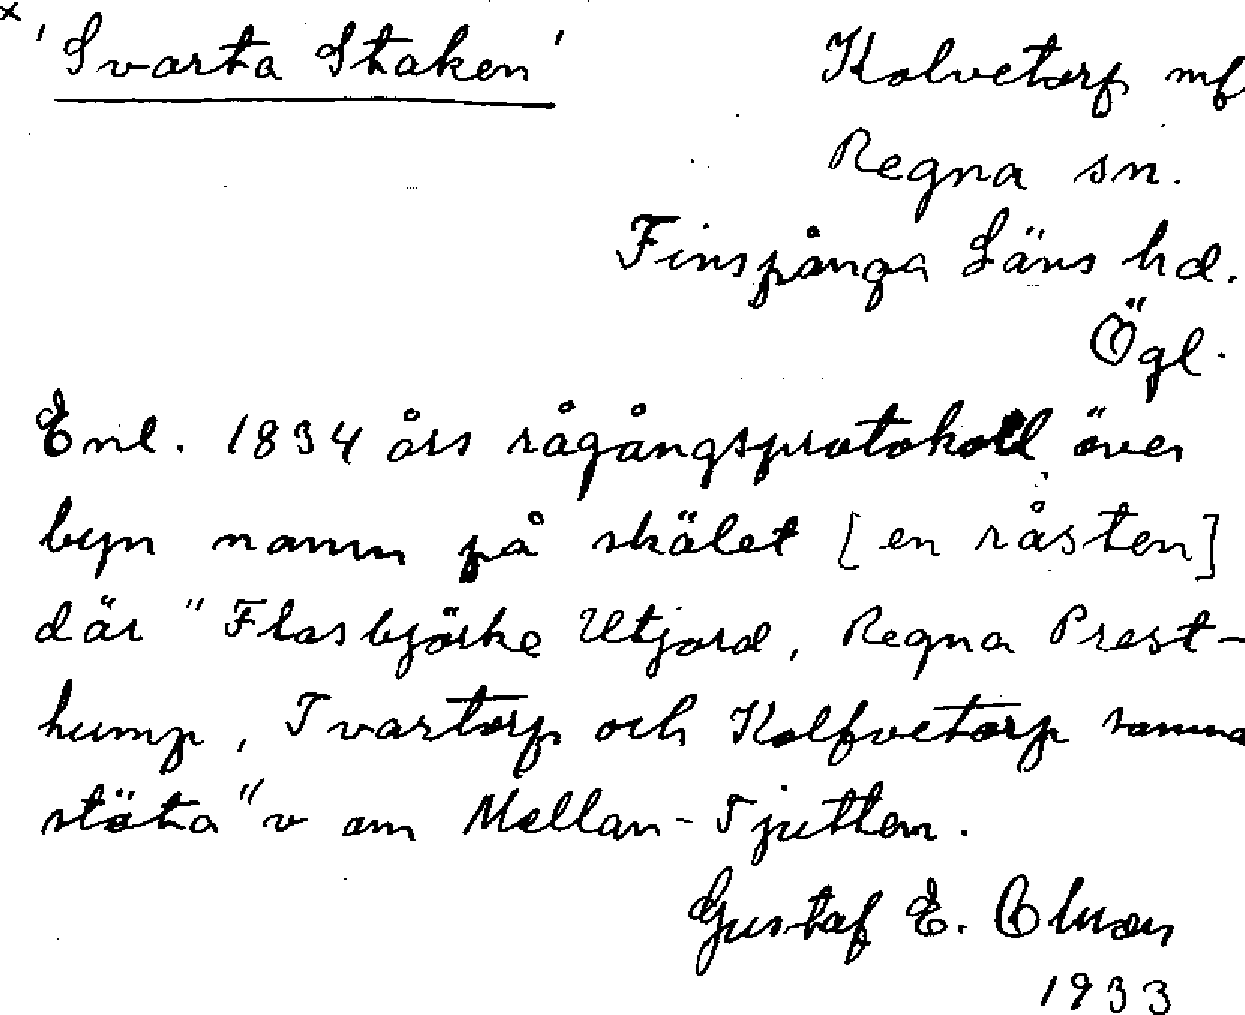 × 'Svarta Staken' Kolvetorp mf
Regna sn.
Finspånga Läns hd.
Ögl.
Enl. 1834 års rågångsprotokoll över
byn namn på skälet [en råsten]
där "Flasbjörke Utjord, Regna Prest-
hump, Tvartorp och Kolfvetorp samman
stöta" v om Mellan-Tjutten.
Gustaf E.
1933